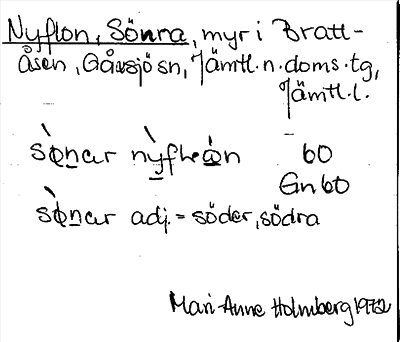 Nyflon, Sönra, myr i Bratt-
åsen, Gåxsjö sn, Jämtl. n. doms. tg,
Jämtl. l.
sønar 60
Gn 60
sønar adj. = söder, södra
Mari-Anne Holmberg 1972